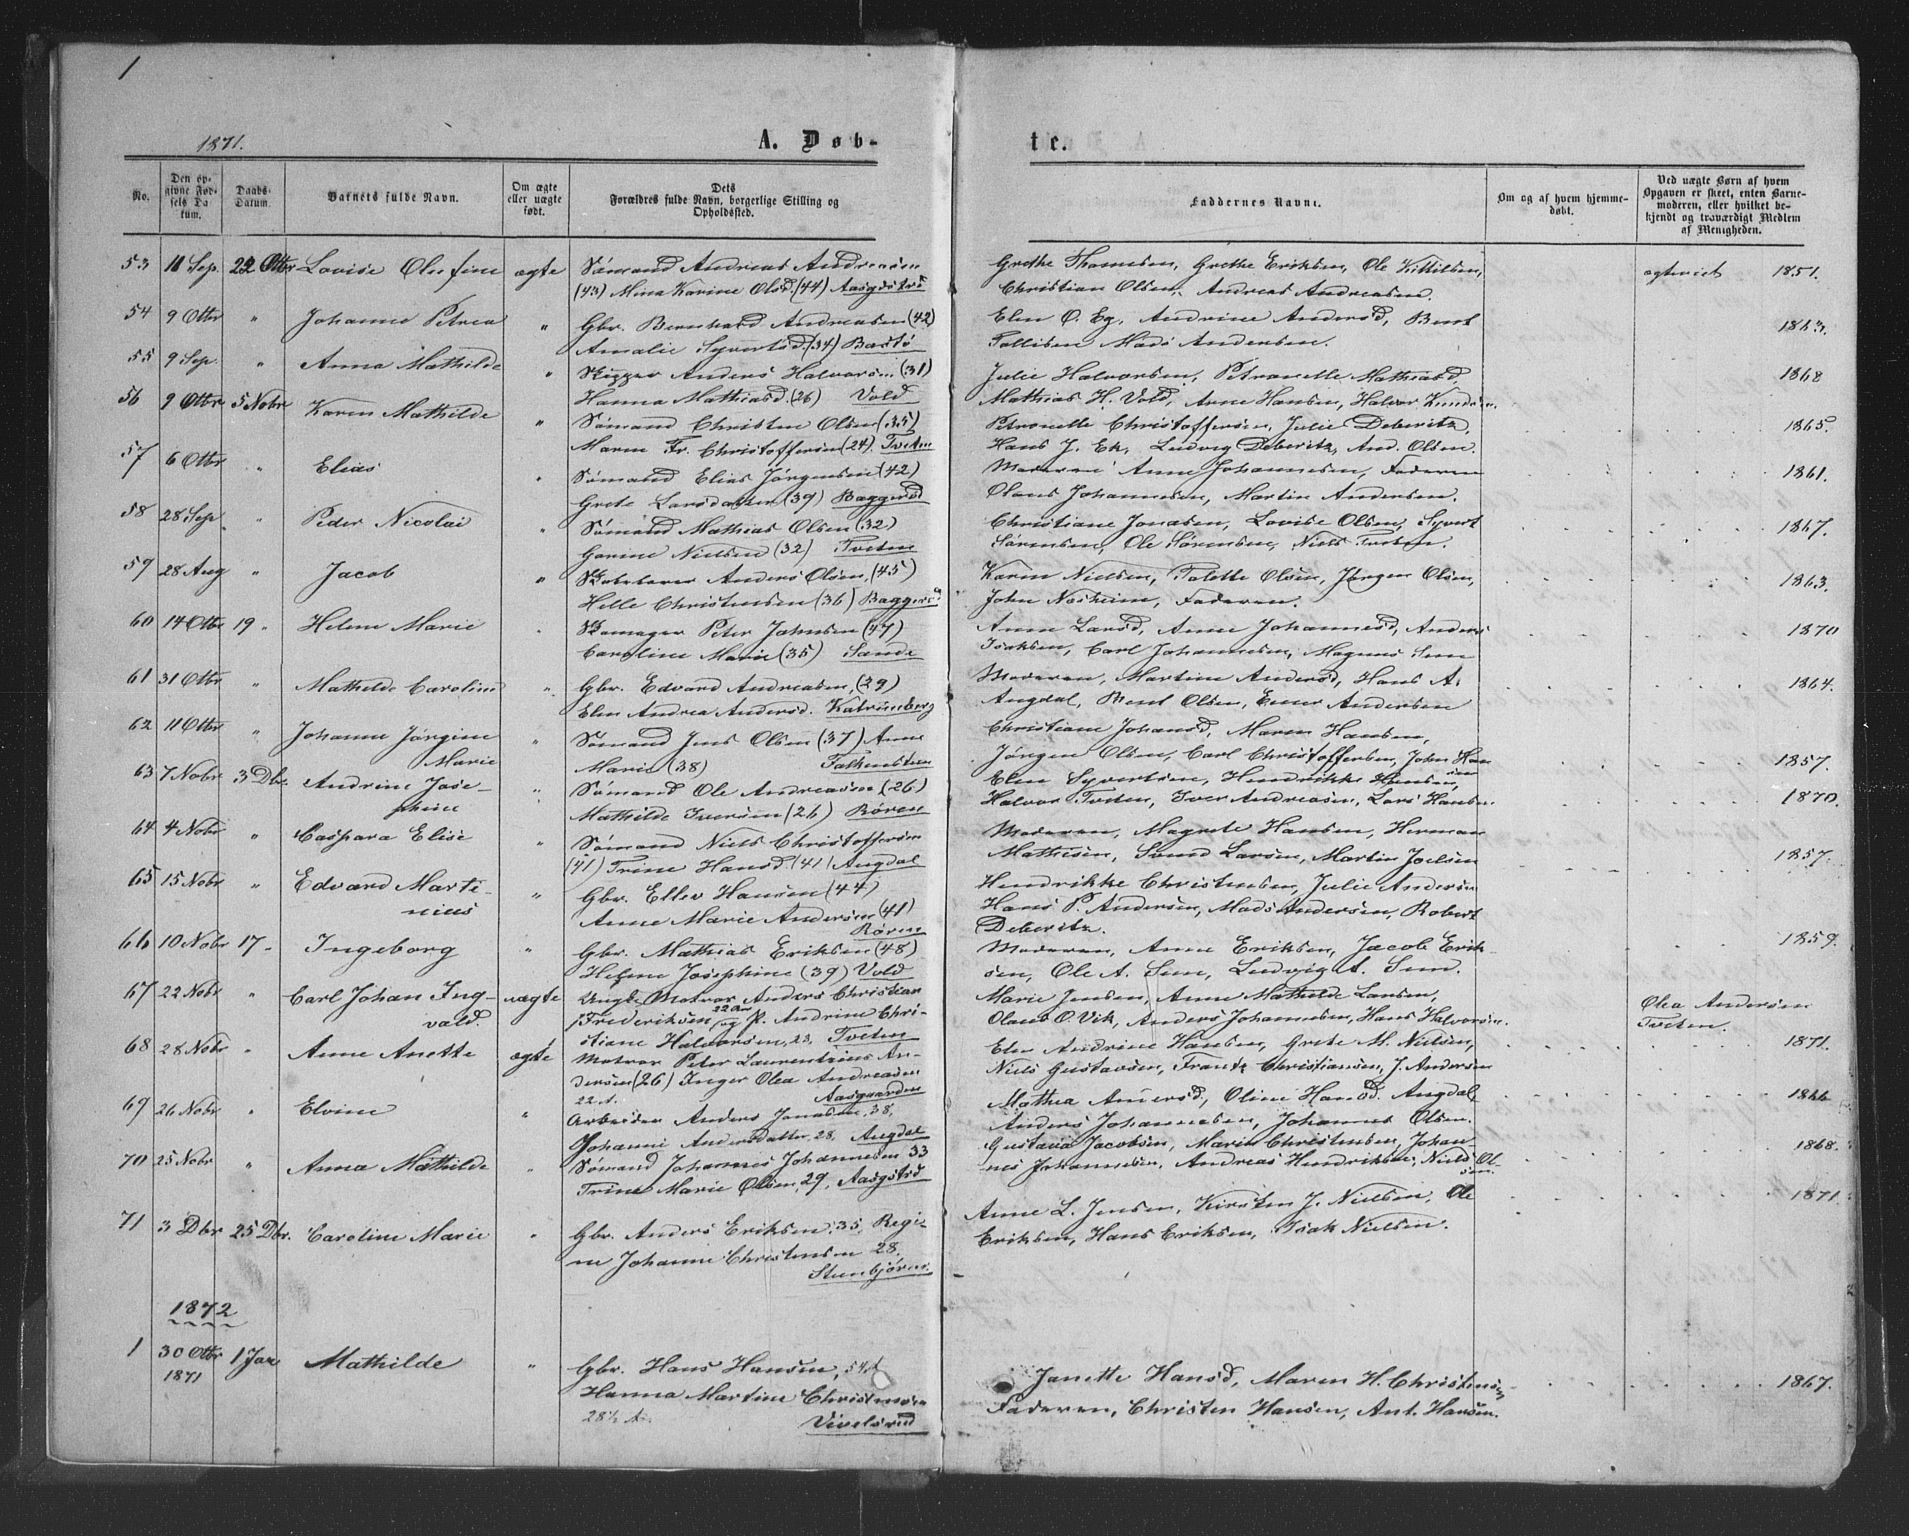 1
1871.
A. Døb-
te.
No.
Den op-
givne Fød-
sels Da
tum.
Daabs-
Datum.
Barnets fulde Navn.
Om ægte
eller uægte
født.
Dets
Forældres fulde Navn, borgerlige Stilling og
Opholdssted.
Faddernes Navne.
Om og af hvem hjemme-
døbt.
Ved uægte Børn af hvem
Opgaven er skeet, enten Barne-
moderen, eller hvilket be-
kjendt og troværdigt Medlem
af Menigheden.
53 11 Sep. 22 Otbr Lovise Olufine ægte Sømand Andreas Andreasen
(43) Mina Karine Olsd. (44)
Grethe Thomesen, Grethe Eriksen, Ole Kittilsen,
Christian Olsen, Andreas Andreasen.
1851.
54 9 Otbr " Johanne Petrea " Gbr. Bernhard Andreasen (42)
Amalie Syvertsd. (34) Bastø
Elen O. Eg, Andrine Andersd, Bent
Tollisen Mads Andersen.
1863.
55 9 Sep. " Anna Mathilde " Skipper Anders Halvorsen (31)
Hanna Mathiasd. (26) Vold
Julie Halvorsen, Petronelle Mathiasd,
Mathias H. Vold, Anne Hansen, Halvor Knudsen.
1868
56 9 Otbr 5 Nobr Karen Mathilde " Sømand Christen Olsen (35)
Maren Fr. Christoffersen (24). Tveten
Petronelle Christoffersen, Julie Deberitz,
Hans J. Ek, Ludvig Deberitz, And. Olsen.
1865.
57 6 Otbr " Elias " Sømand Elias Jørgensen (42)
Grete Larsdatter (39) Baggerød
Moderen Anne Johannesen, Faderen
Olaus Johannesen, Martin Andersen.
1861.
58 28 Sep " Peder Nicolai " Sømand Mathias Olsen (32)
Gorine Nielsen (32) Tveten
Christiane Jonasen, Lovise Olsen, Syvert
Sørensen, Ole Sørensen, Niels Tveten.
1867.
59 28 Aug " Jacob " Anders Olsen, (45)
Helle Christensen (36) Baggerød
Karen Nielsen, Tolette Olsen, Jørgen Olsen,
John Næsheim, Faderen.
1863.
60 14 Otbr 19 " Helene Marie " Skomager Peter Johnsen (47)
Caroline Marie (35) Sande
Anne Larsd, Anne Johannesd, Anders
Isaksen, Carl Johannesen, Magnus Sem
1870
61 31 Otbr " Mathilde Caroline " Gbr. Edvard Andreasen, (29)
Elen Andrea Andersd. Katrineberg
Moderen, Martine Andersd, Hans A.
Angdal, Bent Olsen, Andersen
1864.
62 11 Otbr " Johanne Jørgine
Marie
" Sømand Jens Olsen (37) Anne
Marie (38) Falkensteen
Christiane Johansd, Maren Hansen,
Jørgen Olsen, Carl Christoffersen, John Han
sen
1857.
63 7 Nobr 3 Dbr. Andrine Jose-
phine
" Sømand Ole Andreasen (26)
Mathilde Iversen (26) Røren
Elen Syvertsen, Hendrikke Hansen,
Halvor Tveten, Iver Andreasen, Lars Hansen.
1870.
64 4 Nobr " Caspara Elise " Sømand Niels Christoffersen
(41) Trine Hansd. (41) Angdal
Moderen, Magrete Hansen, Herman
Mathisen, Svend Larsen, Martin Joelsen
1857.
65 15 Nobr " Edvard Marti-
nius
" Gbr. Ellev Hansen (44)
Anne Marie Andersen (41)
Røren
Hendrikke Christensen, Julie Andersen
Hans P. Andersen, Mads Andersen, Robert
Deberitz.
66 10 Nobr 17 - Ingeborg " Gbr. Mathias Eriksen (48)
Helene Josephine (39) Vold
Moderen, Anne Eriksen, Jacob Erik-
sen, Ole A. Sem, Ludvig A. Sem.
1859.
67 22 Nobr " Carl Johan Ing-
vald.
uægte Ungk. Matros Anders Christian
Frederiksen, 22 Aar og P. Andrine Chri-
stiane Halvorsen, 23, Tveten
Marie Jensen, Anne Mathilde Larsen,
Olaus O. Vik, Anders Johannesen, Hans Halvorsen.
Olea Andersen
Tveten.
68 28 Nobr " Anne Anette ægte Matros Peter Laurentzius An-
dersen (26) Inger Olea Andreasen
22 A. Aasgaarden
Elen Andrine Hansen, Grete M. Nielsen,
Niels Gustavsen, Frantz Christiansen, J. Andersen
1871.
69 26 Nobr " Elvine " Arbeider Anders Jonasen, 38,
Johanne Andersdatter, 28, Angdal
Mathea Andersd, Oline Hansd. Angdal,
Anders Johannesen, Johannes Olsen.
1866
70 25 Nobr " Anna Mathilde " Sømand Johannes Johannesen 33
Trine Marie Olsen, 29, Aasgstrd
Gustava Jacobsen, Marie Christensen, Johan-
nes Johannesen, Andreas Hendriksen, Niels Ol-
sen.
1868.
71 3 Dbr 25 Dbr. Caroline Marie " Gbr. Anders Eriksen, 35, Regi-
ne Johanne Christensen 28.
Steenbjøren.
Anne L. Jensen, Kirsten J. Nielsen, Ole
Eriksen, Hans Eriksen, Isak Nielsen.
1871.
1872
1 30 Otbr
1871
1 Jan Mathilde " Gbr. Hans Hansen, 54 A
Hanna Martine Christensen
28½ A.
Vivelsrud
Janette Hansd, Maren H. Christensen
Faderen, Christen Hansen, Ant. Hansen.
1867.